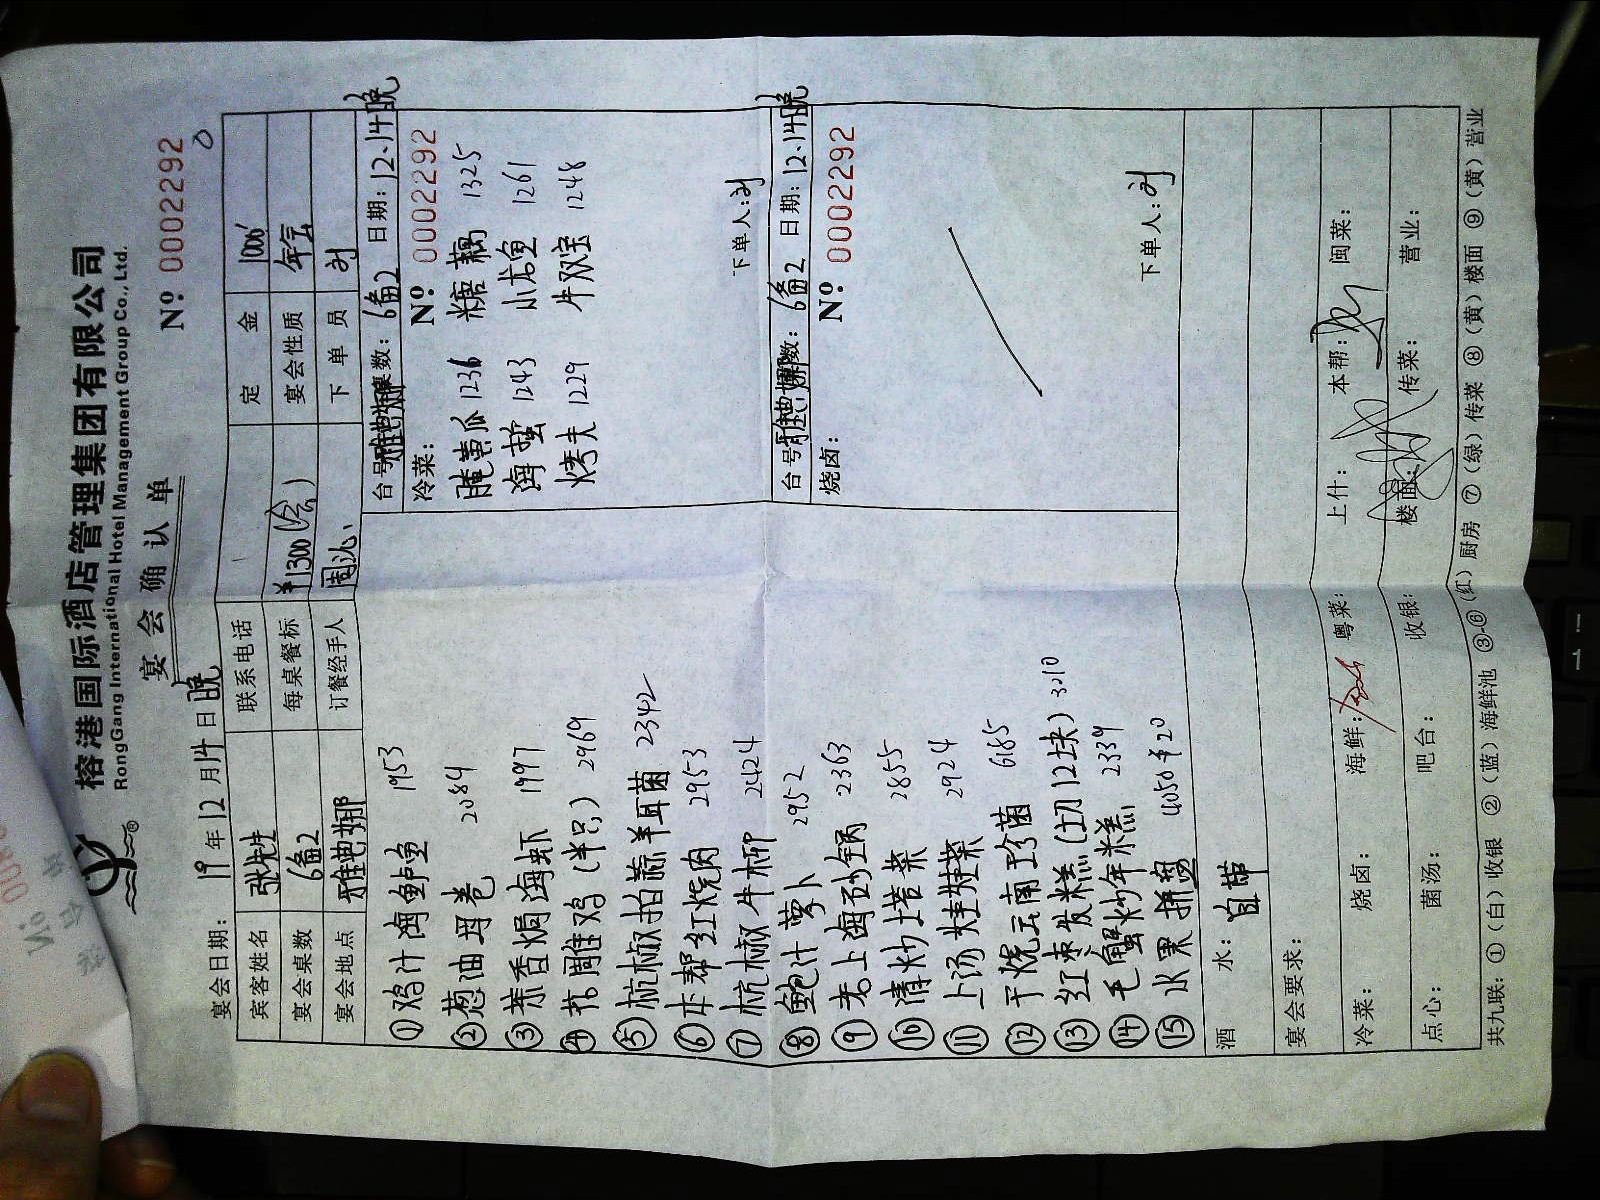 榕港国际酒店管理集团有限公司
RongGang International Hotel Management Group Co., Ltd.
宴会确认单
№ 0002292
宴会日期: 19年12月14日晚
宾客姓名 张先生 联系电话 定金 1000
宴会桌数 6备2 每桌餐标 ¥1300 宴会性质 年会
宴会地点 雅典娜 订餐经手人 下单员
台号 雅典娜 桌数: 6备2 日期: 12.14晚
冷菜: № 0002292
腌黄瓜 1236 糖藕 1325
海蜇 1243 小龙鱼 1261
烤夫 1229 牛双宝 1248
下单人:
台号 雅典娜 桌数: 6备2 日期: 12.14晚
烧卤: № 0002292
下单人:
① 鸡汁海鲈鱼 1953
② 葱油丹卷 2084
③ 茶香焗海虾 1997
④ 雕鸡(半只) 2969
⑤ 杭椒拍蒜羊耳菌 2342
⑥ 本帮红烧肉 2953
⑦ 杭椒牛柳 2424
⑧ 鲍汁萝卜 2952
⑨ 老上海砂锅 2363
⑩ 清炒塔菜 2855
⑪ 上汤娃娃菜 2924
⑫ 干烧云南珍菌 6185
⑬ 红枣发糕(切12块) 3210
⑭ 毛蟹炒年糕 2339
⑮ 水果拼盘 4050
酒水: 自带
宴会要求:
冷菜: 烧卤: 海鲜: 粤菜: 上什: 本帮: 闽菜:
点心: 菌汤: 吧台: 收银: 楼面: 传菜: 营业:
共九联: ①(白)收银 ②(蓝)海鲜池 ③-⑥(红)厨房 ⑦(绿)传菜 ⑧(黄)楼面 ⑨(黄)营业